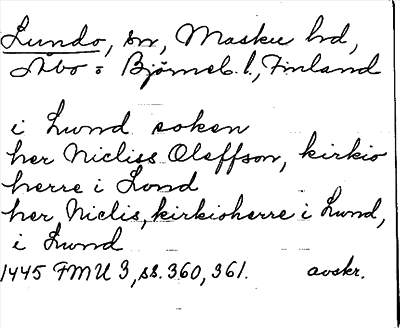 Lundo, sn, Masku hd,
Åbo o Björneb. l., Finland
i Lwnd soken
her Nicliss Oleffson, kirkio
herre i Lond
her Niclis, kirkioherre i Lund,
i Lwnd
1445 FMU 3, ss. 360, 361. avskr.